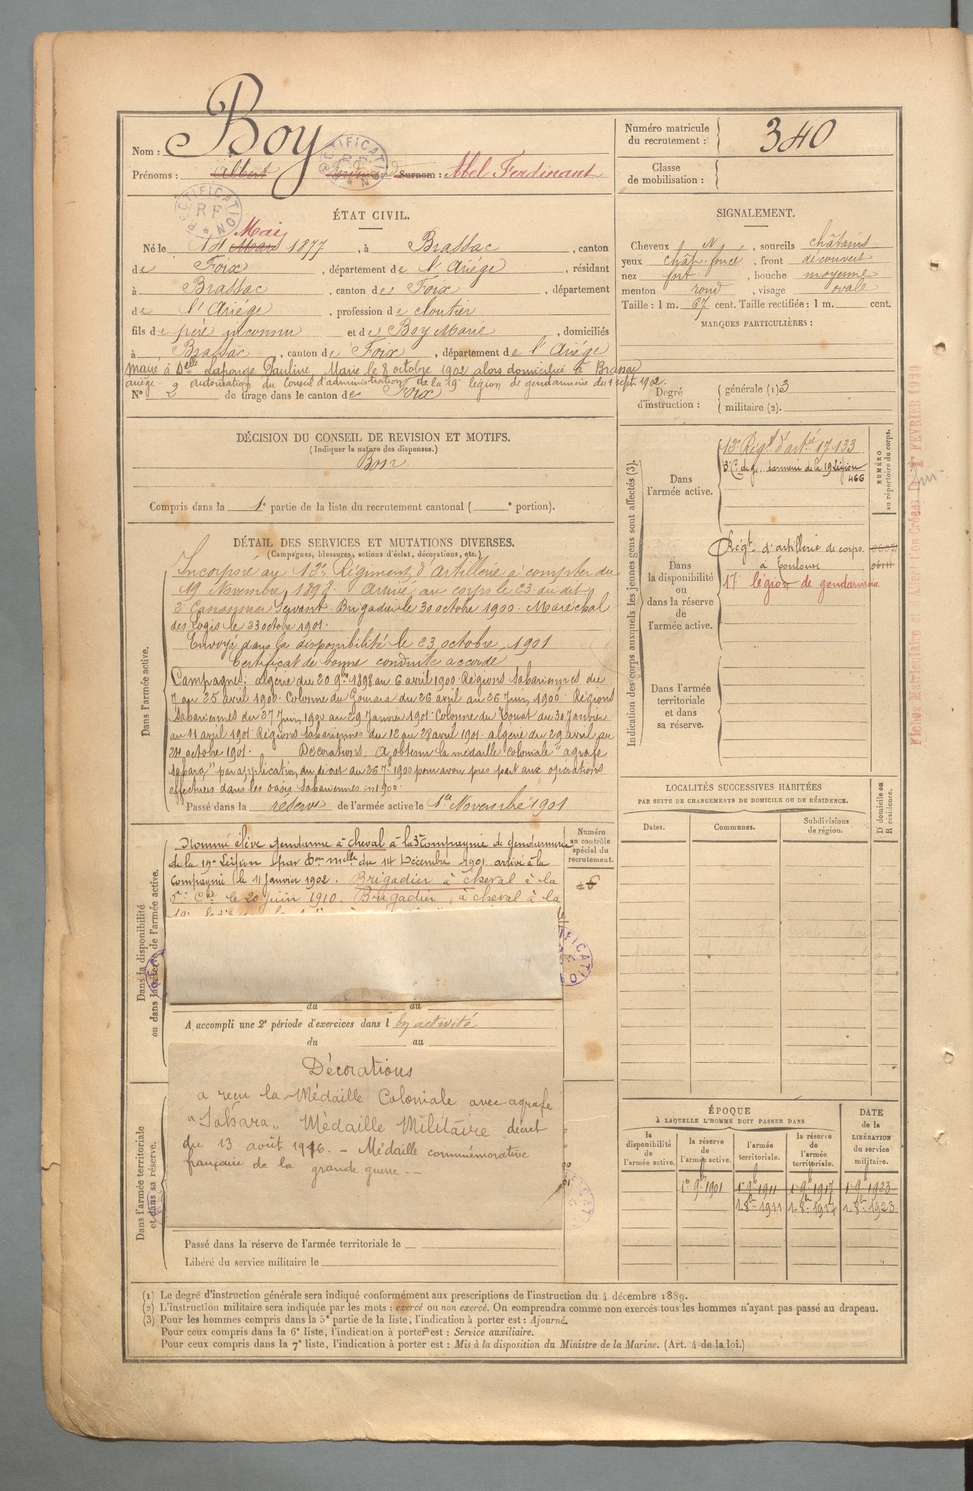 Nom : Boy
Prénoms : Albert Surnom : Abel Ferdinant
RECTIFICATION RF
RECTIFICATION RF
ÉTAT CIVIL.
Mai
Né le 11 Mars 1877, à Brassac, canton
de Foix, département de l'Ariége, résidant
à Brassac, canton de Foix, département
de l'Ariége, profession de cloutier
fils de père inconnu et de Boy Marie, domiciliés
à Brassac, canton de Foix, département de l'Ariége
Marié à Delle Lahonge Pauline, Marie le 8 octobre 1902 alors domiciliée à Brassac
ariège. autorisation du Conseil d'administration de la 19e légion de gendarmerie du 1 sept. 1902.
N° 2 de tirage dans le canton de Foix
DÉCISION DU CONSEIL DE REVISION ET MOTIFS.
(Indiquer la nature des dispenses.)
Bon
Compris dans la 1e partie de la liste du recrutement cantonal ( e portion).
DÉTAIL DES SERVICES ET MUTATIONS DIVERSES.
(Campagnes, blessures, actions d'éclat, décorations, etc.)
Dans l'armée active.
Incorporé au 12e Régiment d'Artillerie à compter du
19 Novembre 1898. Arrivé au corps le 23 du dit
2e Canonnier Servant. Brigadier le 30 octobre 1900. Maréchal
des Logis le 23 octobre 1901.
Envoyé dans la disponibilité le 23 octobre 1901
Certificat de bonne conduite accordé
Campagnes: algérie du 20 9bre 1898 au 6 avril 1900. Régions Sahariennes du
7 au 25 avril 1900. Colonne du Gourara du 26 avril au 26 Juin 1900. Régions
Sahariennes du 27 Juin 1900 au 29 Janvier 1901. Colonne du Touat du 30 Janvier
au 11 avril 1901. Régions Sahariennes du 12 au 28 avril 1901. algérie du 29 avril au
octobre 1901. Décorations. A obtenu la médaille coloniale "agrafe
Sahara" par application du décret du 1900 pour avoir pris part aux opérations
effectuées dans les oasis Sahariennes en 1900.
Passé dans la réserve de l'armée active le 1er Novembre 1901
Dans la disponibilité ou dans la réserve de l'armée active.
Nommé élève gendarme à cheval à la 3e Compagnie de Gendarmerie
de la 19e Légion par Don Mlle du 14 Décembre 1901 arrivé à la
Compagnie le 11 Janvier 1902. Brigadier à cheval à la
Cie le 20 juin 1910. Brigadier à cheval à la
Numéro au contrôle spécial du recrutement.
du au
A accompli une 2e période d'exercices dans l en activité
du au
Dans l'armée territoriale et dans sa réserve.
Décorations
a reçu la Médaille Coloniale avec agrafe
"Sahara" Médaille Militaire décret
du 13 août 1916. - Médaille commémorative
française de la grande guerre --
Passé dans la réserve de l'armée territoriale le
Libéré du service militaire le
Numéro matricule du recrutement : 340
Classe de mobilisation :
SIGNALEMENT.
Cheveux N, sourcils châtains
yeux chât. foncé, front découvert
nez fort, bouche moyenne
menton rond, visage ovale
Taille : 1 m. 67 cent. Taille rectifiée : 1 m. cent.
MARQUES PARTICULIÈRES :
Degré d'instruction : générale (1) 3
militaire (2).
Indication des corps auxquels les jeunes gens sont affectés (3).
NUMÉRO au répertoire du corps.
Dans l'armée active.
12e Régt d'artie 17.133
3e Cie de gendarmerie de la 19e Légion
466
Dans la disponibilité ou dans la réserve de l'armée active.
Régt d'artillerie de corps
à Toulouse
17 légion de gendarmerie
Dans l'armée territoriale et dans sa réserve.
LOCALITÉS SUCCESSIVES HABITÉES
PAR SUITE DE CHANGEMENTS DE DOMICILE OU DE RÉSIDENCE.
Dates. Communes. Subdivisions de région. D domicile ou R résidence.
ÉPOQUE
À LAQUELLE L'HOMME DOIT PASSER DANS
DATE de la LIBÉRATION du service militaire.
la disponibilité de l'armée active. la réserve de l'armée active. l'armée territoriale. la réserve de l'armée territoriale.
1er 9bre 1901 1er 9bre 1911 1er 9bre 1917 1er 9bre 1923
1 8bre 1911 1 8bre 1917 1 8bre 1923
(1) Le degré d'instruction générale sera indiqué conformément aux prescriptions de l'instruction du 4 décembre 1889.
(2) L'instruction militaire sera indiquée par les mots : exercé ou non exercé. On comprendra comme non exercés tous les hommes n'ayant pas passé au drapeau.
(3) Pour les hommes compris dans la 5e partie de la liste, l'indication à porter est : Ajourné.
Pour ceux compris dans la 6e liste, l'indication à porter est : Service auxiliaire.
Pour ceux compris dans la 7e liste, l'indication à porter est : Mis à la disposition du Ministre de la Marine. (Art. 4 de la loi.)